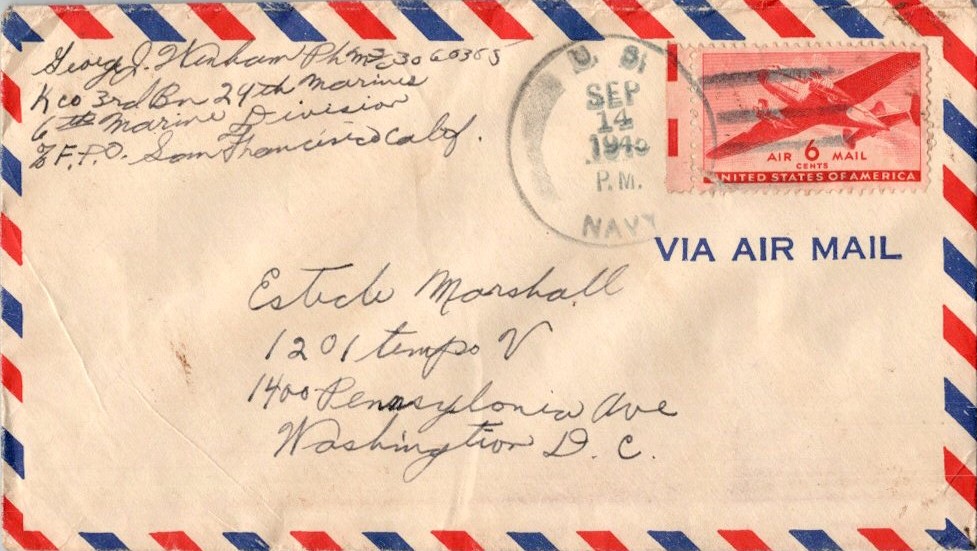 George J. Ph M 3/c
K co 3rd Bn 29th Marines
6th Marine Division
% F.P.O. San Francisico Calif.
U. S.
SEP
14
P.M.
NAVY
AIR 6 MAIL
CENTS
UNITED STATES OF AMERICA
VIA AIR MAIL
Marshall
1201 tempo V
1400 Pennsylvania Ave
Washington D. C.